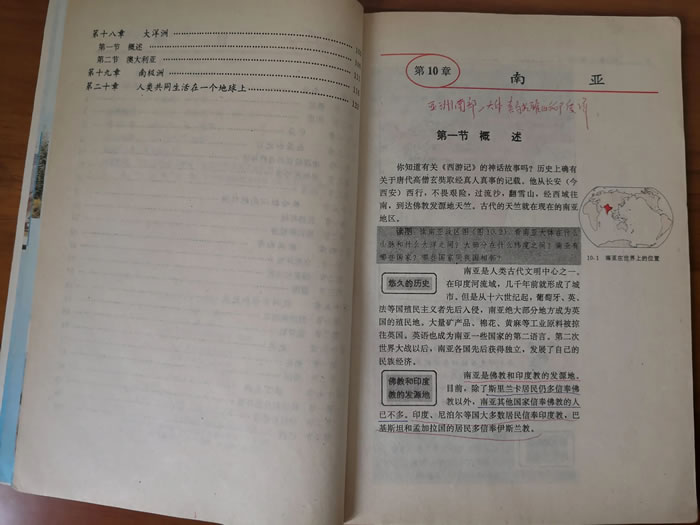 第十八章 大洋洲
第一节 概述
第二节 澳大利亚
第十九章 南极洲
第二十章 人类共同生活在一个地球上
第10章
南 亚
第一节 概 述
你知道有关《西游记》的神话故事吗?历史上确有
关于唐代高僧玄奘取经真人真事的记载。他从长安(今
西安)西行,不畏艰险,过流沙,翻雪山,经西域往
南,到达佛教发源地天竺。古代的天竺就在现在的南亚
地区。
读图
10.1 南亚在世界上的位置
悠久的历史
南亚是人类古代文明中心之一。
在印度河流域,几千年前就形成了城
市。但是从十六世纪起,葡萄牙、英、
法等国殖民主义者先后入侵,南亚绝大部分地方成为英
国的殖民地。大量矿产品、棉花、黄麻等工业原料被掠
往英国。英语也成为南亚一些国家的第二语言。第二次
世界大战以后,南亚各国先后获得独立,发展了自己的
民族经济。
佛教和印度
教的发源地
南亚是佛教和印度教的发源地。
目前,除了斯里兰卡居民仍多信奉佛
教以外,南亚其他国家信奉佛教的人
已不多。印度、尼泊尔等国大多数居民信奉印度教,巴
基斯坦和孟加拉国的居民多信奉伊斯兰教。